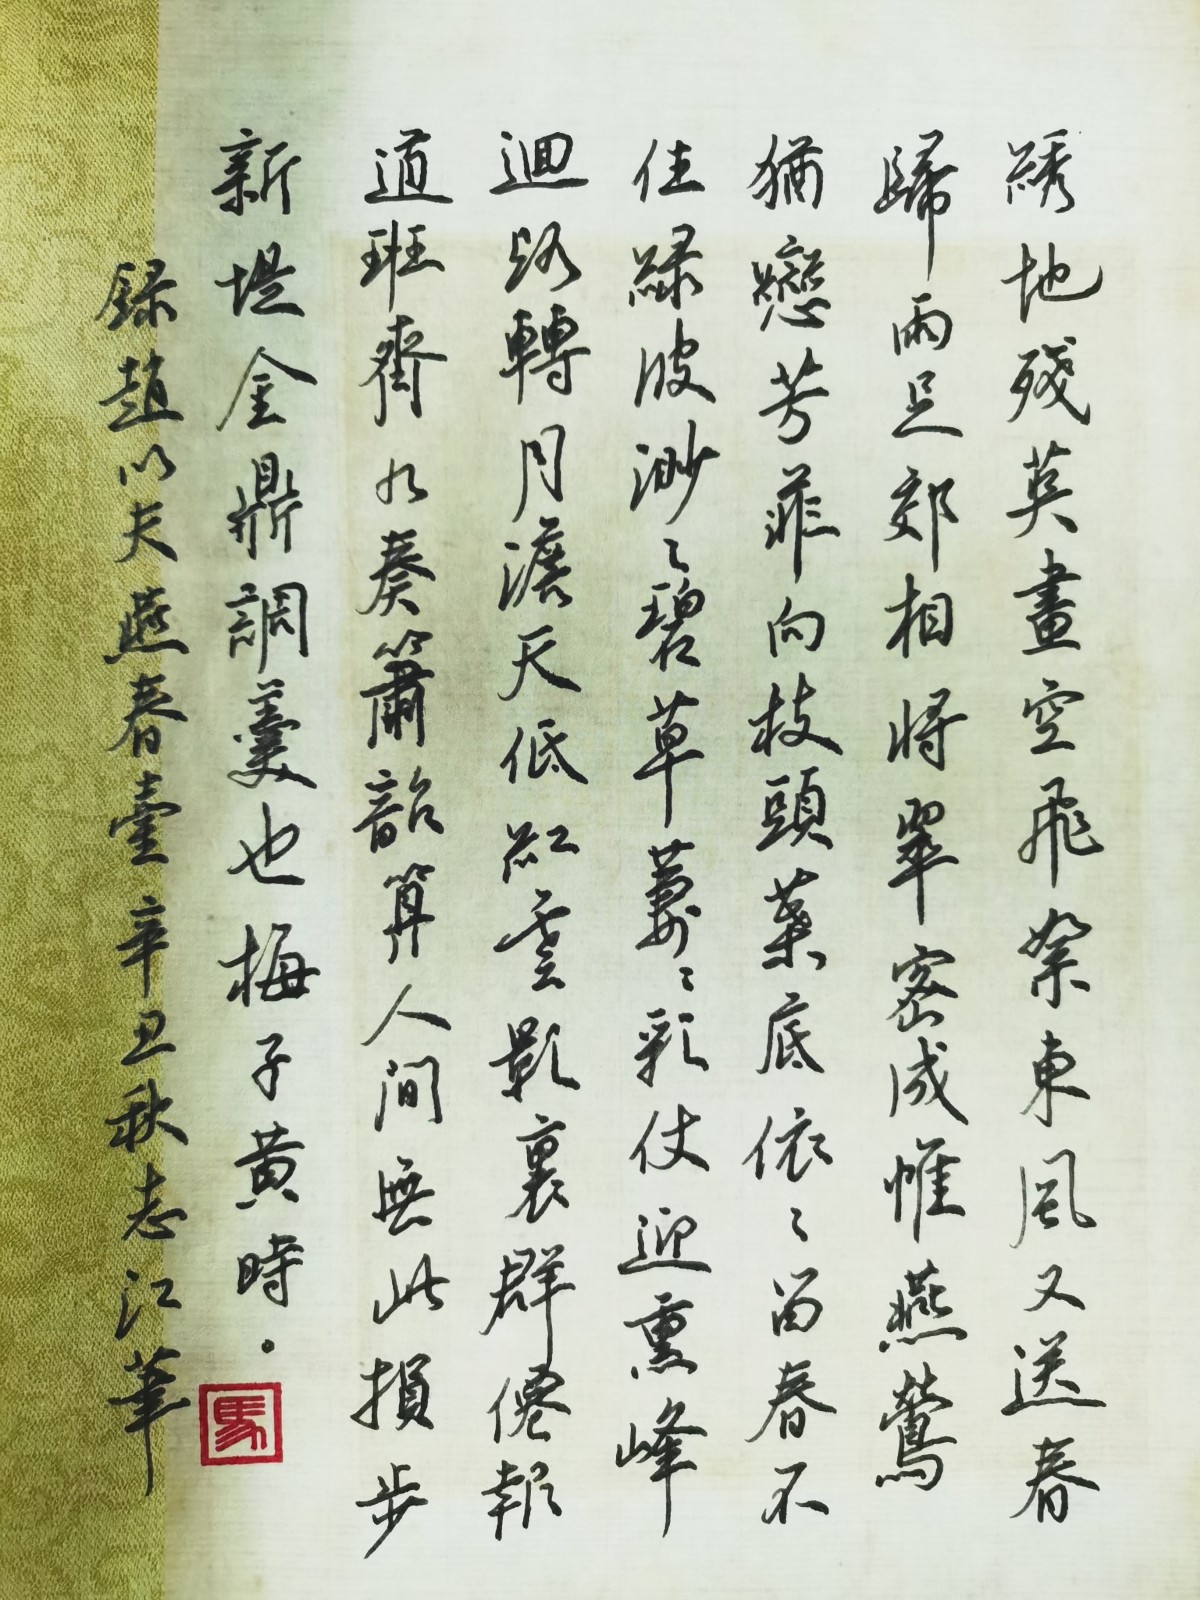 綉地殘英畫空飛絮東風又送春
歸雨足郊相將翠密成帷燕鶯
猶戀芳菲向枝頭葉底依〻留春不
住綠波渺〻碧草萋〻彩仗迎熏峰
迴路轉月澹天低紅雲影裏群僊報
道班齊九奏簫韶算人間無此損步
新堤金鼎調羹也梅子黃時。
錄趙以夫燕春臺辛丑秋志江筆
馬